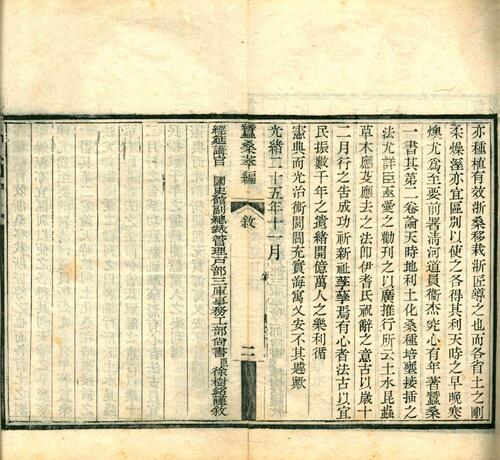 亦種植有效浙桑移栽浙匠導之也而各省土之剛
柔燥溼亦宜區別以使之各得其利天時之早晚寒
燠尤爲至要前署清河道員衞杰究心有年著蠶桑
一書其第二卷論天時地利土化桑種培壅接插之
法尤詳臣亟愛之勸刊之以廣推行所云土水昆蟲
草木應及應去之法卽伊耆氏祝辭之意古以歲十
二月行之告成功祈新祉孳孳焉有心者法古以宜
民振數千年之遺緒開億萬人之樂利循
憲典而光治衢閭閻充實海寓乂安不其遐歟
光緖二十五年十一月
蠶桑萃編
敘
二
經筵講官 國史館副總裁管理戶部三庫事務工部尙書臣徐樹銘謹敘